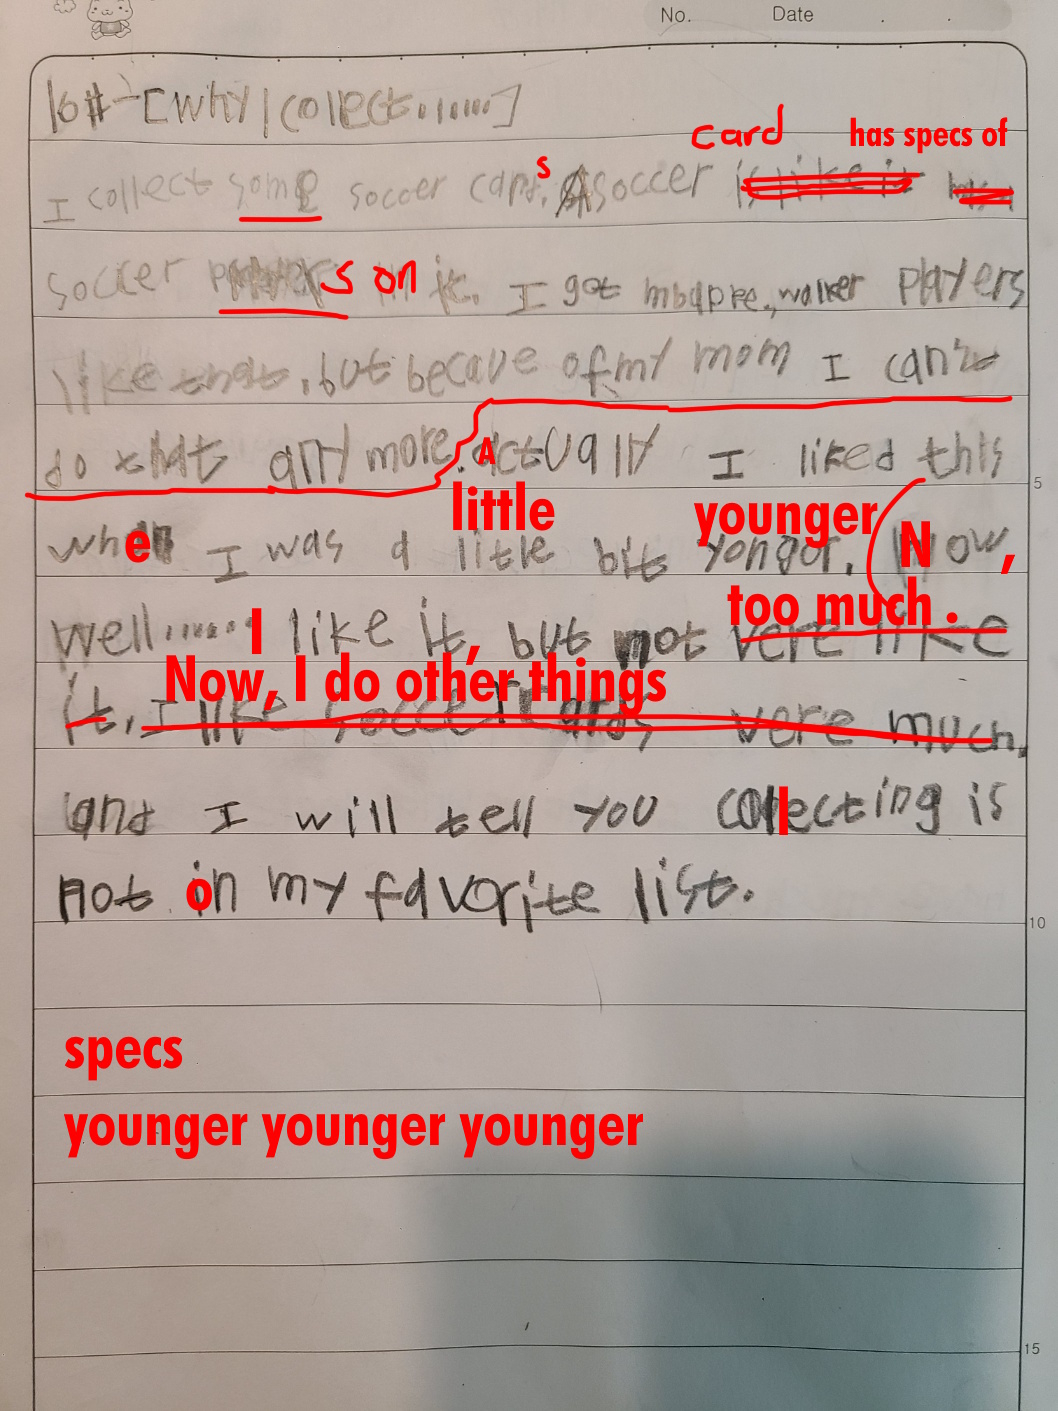 No. Date . .
16# - [Why I collect.......]
card has specs of
I collect some soccer cards. A soccer is like it
soccer s on it. I got mbappe, walker players
like that, but becaue of my mom I can't
do that any more. Actually I liked this
little younger
when I was a little bit yonger. Now,
too much.
Well...... I like it, but not vere like
Now, I do other things
it. I like soccer cards vere much.
and I will tell you collecting is
not on my favorite list.
specs
younger younger younger
5
10
15